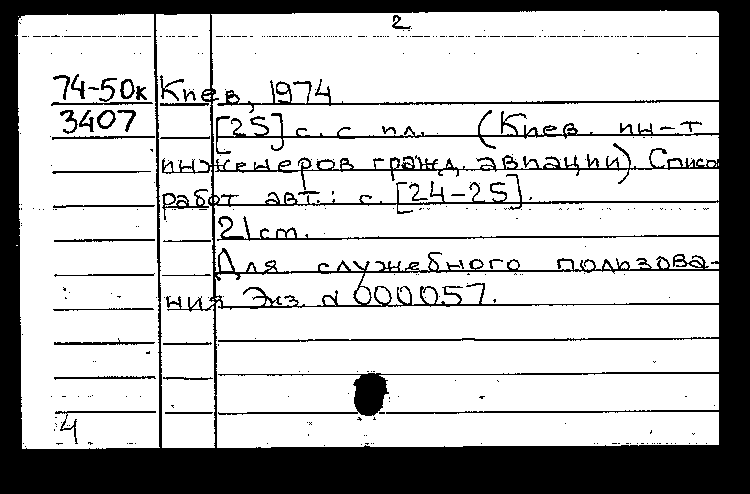 2
74-50к Киев, 1974
3407 [25] с. с ил. (Киев. ин-т
инженеров гражд. авиации). Список
работ авт.: с. [24-25].
21 см.
Для служебного пользова-
ния Экз. № 000057.
4